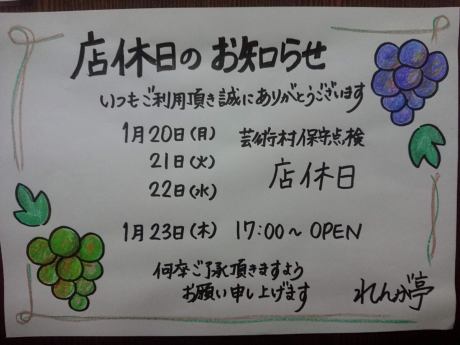 店休日のお知らせ
いつもご利用頂き誠にありがとうございます
1月20日(月) 芸術村保守点検
21日(火) 店休日
22日(水)
1月23日(木) 17:00〜 OPEN
何卒ご了承頂きますよう
お願い申し上げます
れんが亭